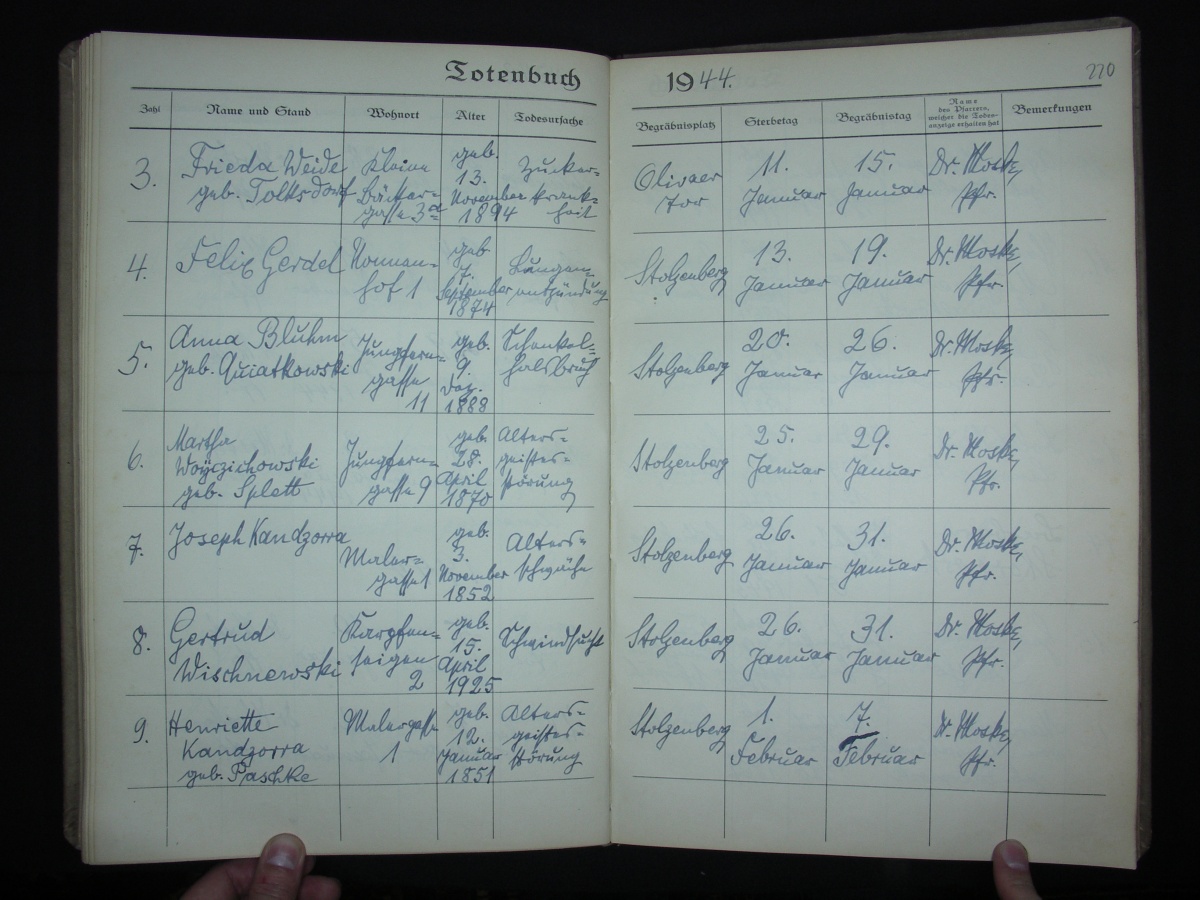 Totenbuch 1944.
270
Zahl Name und Stand Wohnort Alter Todesursache Begräbnisplatz Sterbetag Begräbnistag Name des Pfarrers, welcher die Todesanzeige erhalten hat Bemerkungen
3. Frieda Weide geb. Tolksdorf
Kleine Bäcker-
gasse 3a
geb.
13.
November
1894
Zucker-
krank-
heit
Olivaer
Tor
11.
Januar
15.
Januar
Dr. Moske,
Pfr.
4. Felix Gerdel
Nonnen-
hof 1
geb
7.
September
1874
Lungen-
entzündung
Stolzenberg
13.
Januar
19.
Januar
Dr. Moske,
Pfr.
5. Anna Bluhm
geb. Quiatkowski
Jungfern-
gasse
11
geb.
9.
Dez.
1888
Schenkel-
halsbruch
Stolzenberg
20.
Januar
26.
Januar
Dr. Moske,
Pfr.
6. Martha
Woyczichowski
geb. Splett
Jungfern-
gasse 9
geb.
28.
April
1870
Alters-
geistes-
störung
Stolzenberg
25.
Januar
29.
Januar
Dr. Moske,
Pfr.
7. Joseph Kandzorra
Maler-
gasse 1
geb.
3.
November
1852
Alters-
schwäche
Stolzenberg
26.
Januar
31.
Januar
Dr. Moske,
Pfr.
8. Gertrud
Wischnewski
Karpfen-
seigen
2
geb.
15.
April
1925
Schwindsucht
Stolzenberg
26.
Januar
31.
Januar
Dr. Moske,
Pfr.
9. Henriette
Kandzorra
geb. Paschke
Malergasse
1
geb.
12.
Januar
1851
Alters-
geistes-
störung
Stolzenberg
1.
Februar
7.
Februar
Dr. Moske,
Pfr.